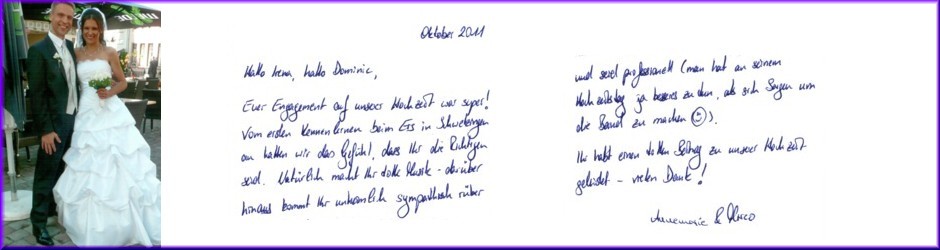 Oktober 2011
Hallo Irena, hallo Dominic,
Euer Engagement auf unserer Hochzeit war super!
Vom ersten Kennenlernen beim Eis in Schwetzingen
an hatten wir das Gefühl, dass Ihr die Richtigen
seid. Natürlich macht Ihr tolle Musik - darüber
hinaus kommt Ihr unheimlich sympathisch rüber
und seid professionell (man hat an seinem
Hochzeitstag ja besseres zu tun, als sich Sorgen um
die Band zu machen ☺).
Ihr habt einen tollen Beitrag zu unserer Hochzeit
geleistet - vielen Dank!
Annemarie & Marco